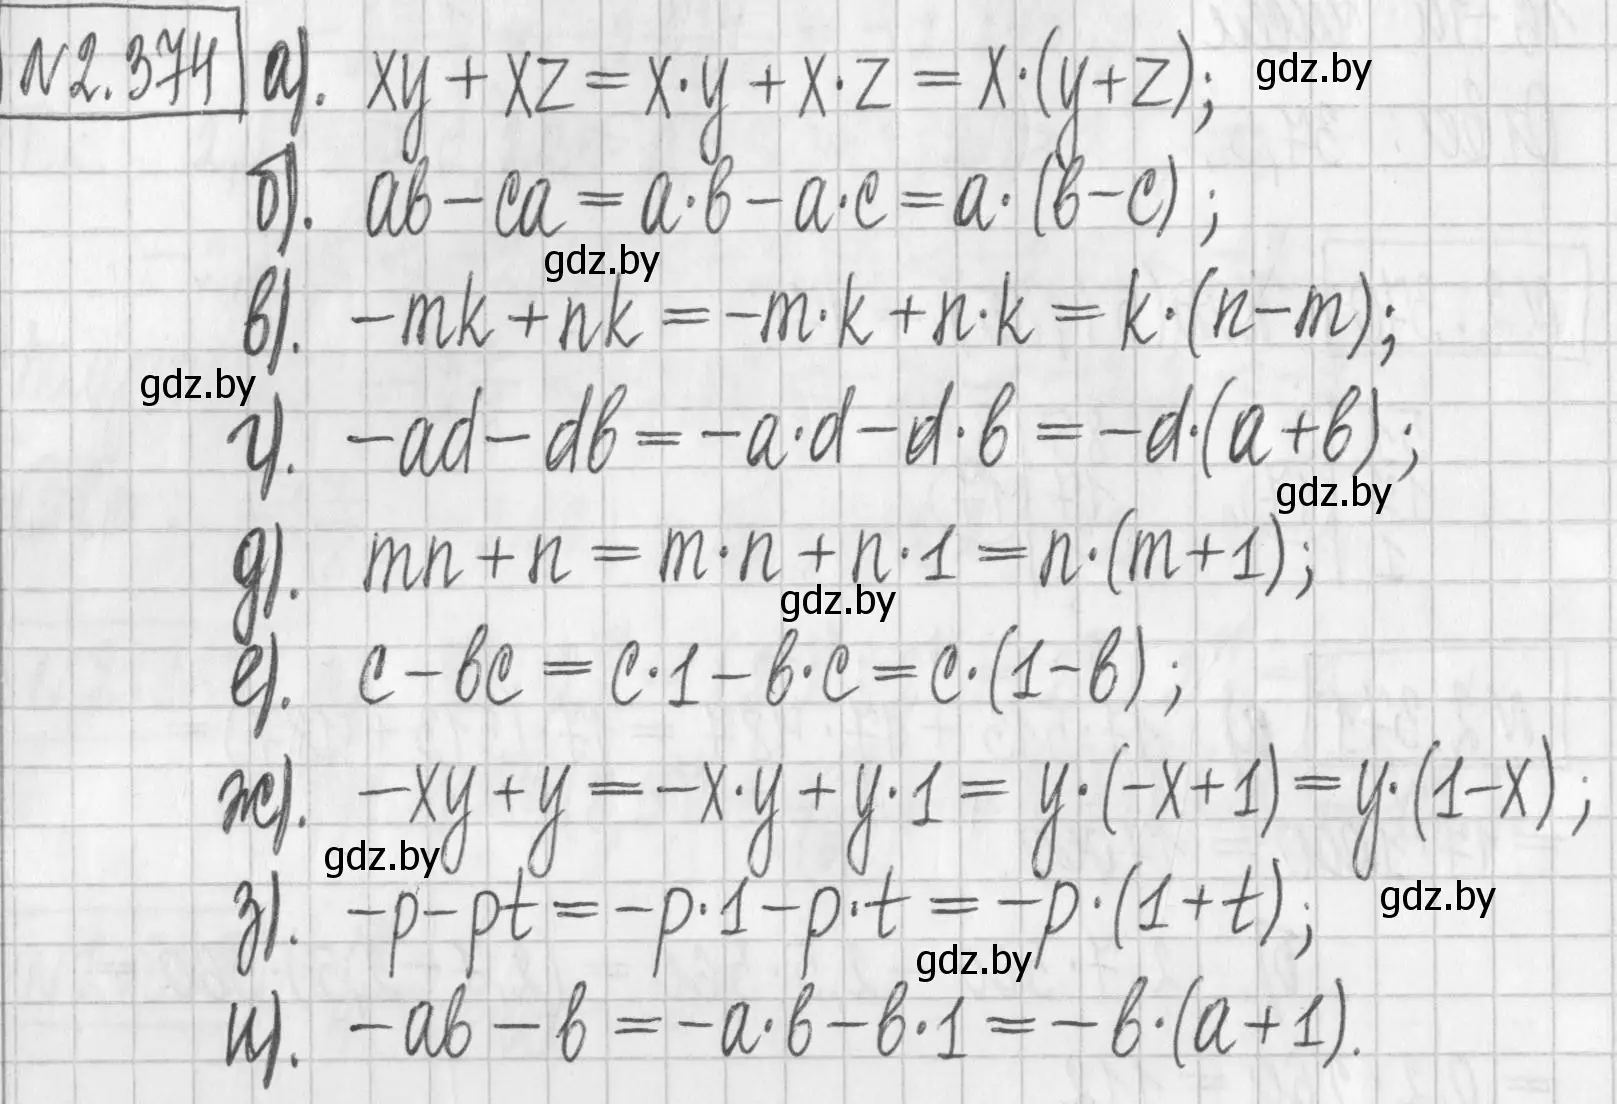 N2.374 а). xy + xz = x·y + x·z = x·(y+z); gdz.by
б). ab − ca = a·b − a·c = a·(b−c);
gdz.by
в). −mk + nk = −m·k + n·k = k·(n−m);
gdz.by
г). −ad − db = −a·d − d·b = −d·(a+b);
gdz.by
д). mn + n = m·n + n·1 = n·(m+1);
gdz.by
е). c − bc = c·1 − b·c = c·(1−b);
ж). −xy + y = −x·y + y·1 = y·(−x+1) = y·(1−x);
gdz.by
з). −p − pt = −p·1 − p·t = −p·(1+t); gdz.by
gdz.by
и). −ab − b = −a·b − b·1 = −b·(a+1).